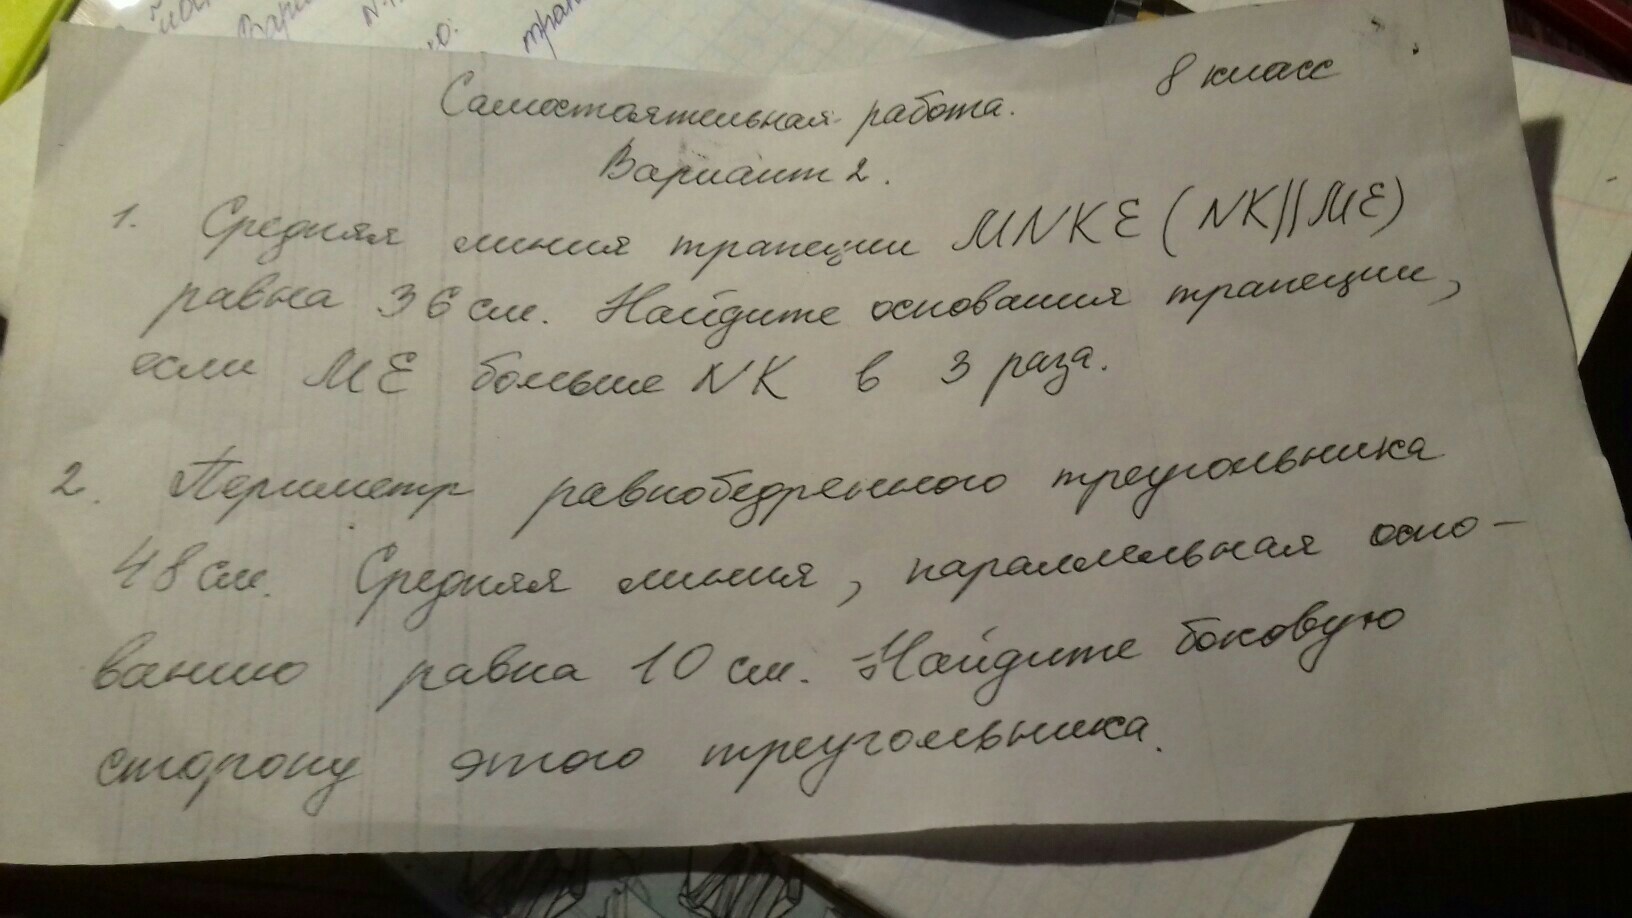 8 класс
Самостоятельная работа.
Вариант 2.
1. Средняя линия трапеции MNKE (NK||ME)
равна 36 см. Найдите основания трапеции,
если ME больше NK в 3 раза.
2. Периметр равнобедренного треугольника
48 см. Средняя линия, параллельная осно-
ванию равна 10 см. Найдите боковую
сторону этого треугольника.